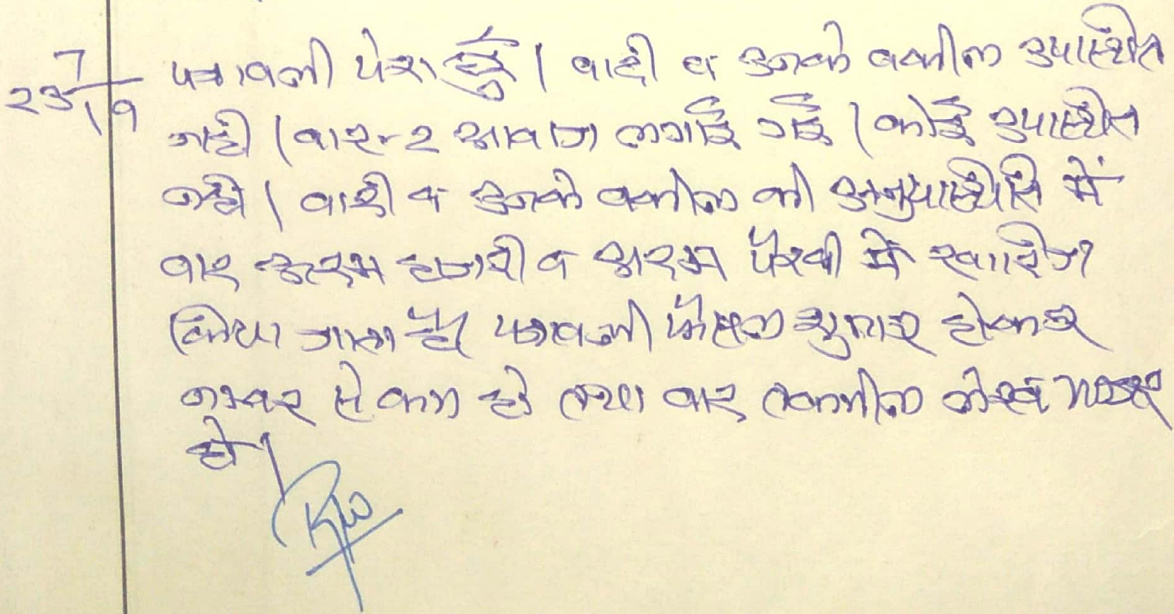 23/7/19 पत्रावली पेश हुई। वादी व उनके वकील उपस्थित
नही। बार-2 आवाज लगाई गई। कोई उपस्थित
नही। वादी व उनके वकील की अनुपस्थिति में
वाद अदम हाजरी व अदम पैरवी में खारिज
किया जाता है। पत्रावली फैसल शुमार होकर
नम्बर से कम हो तथा बाद तकमील लेख
हो।